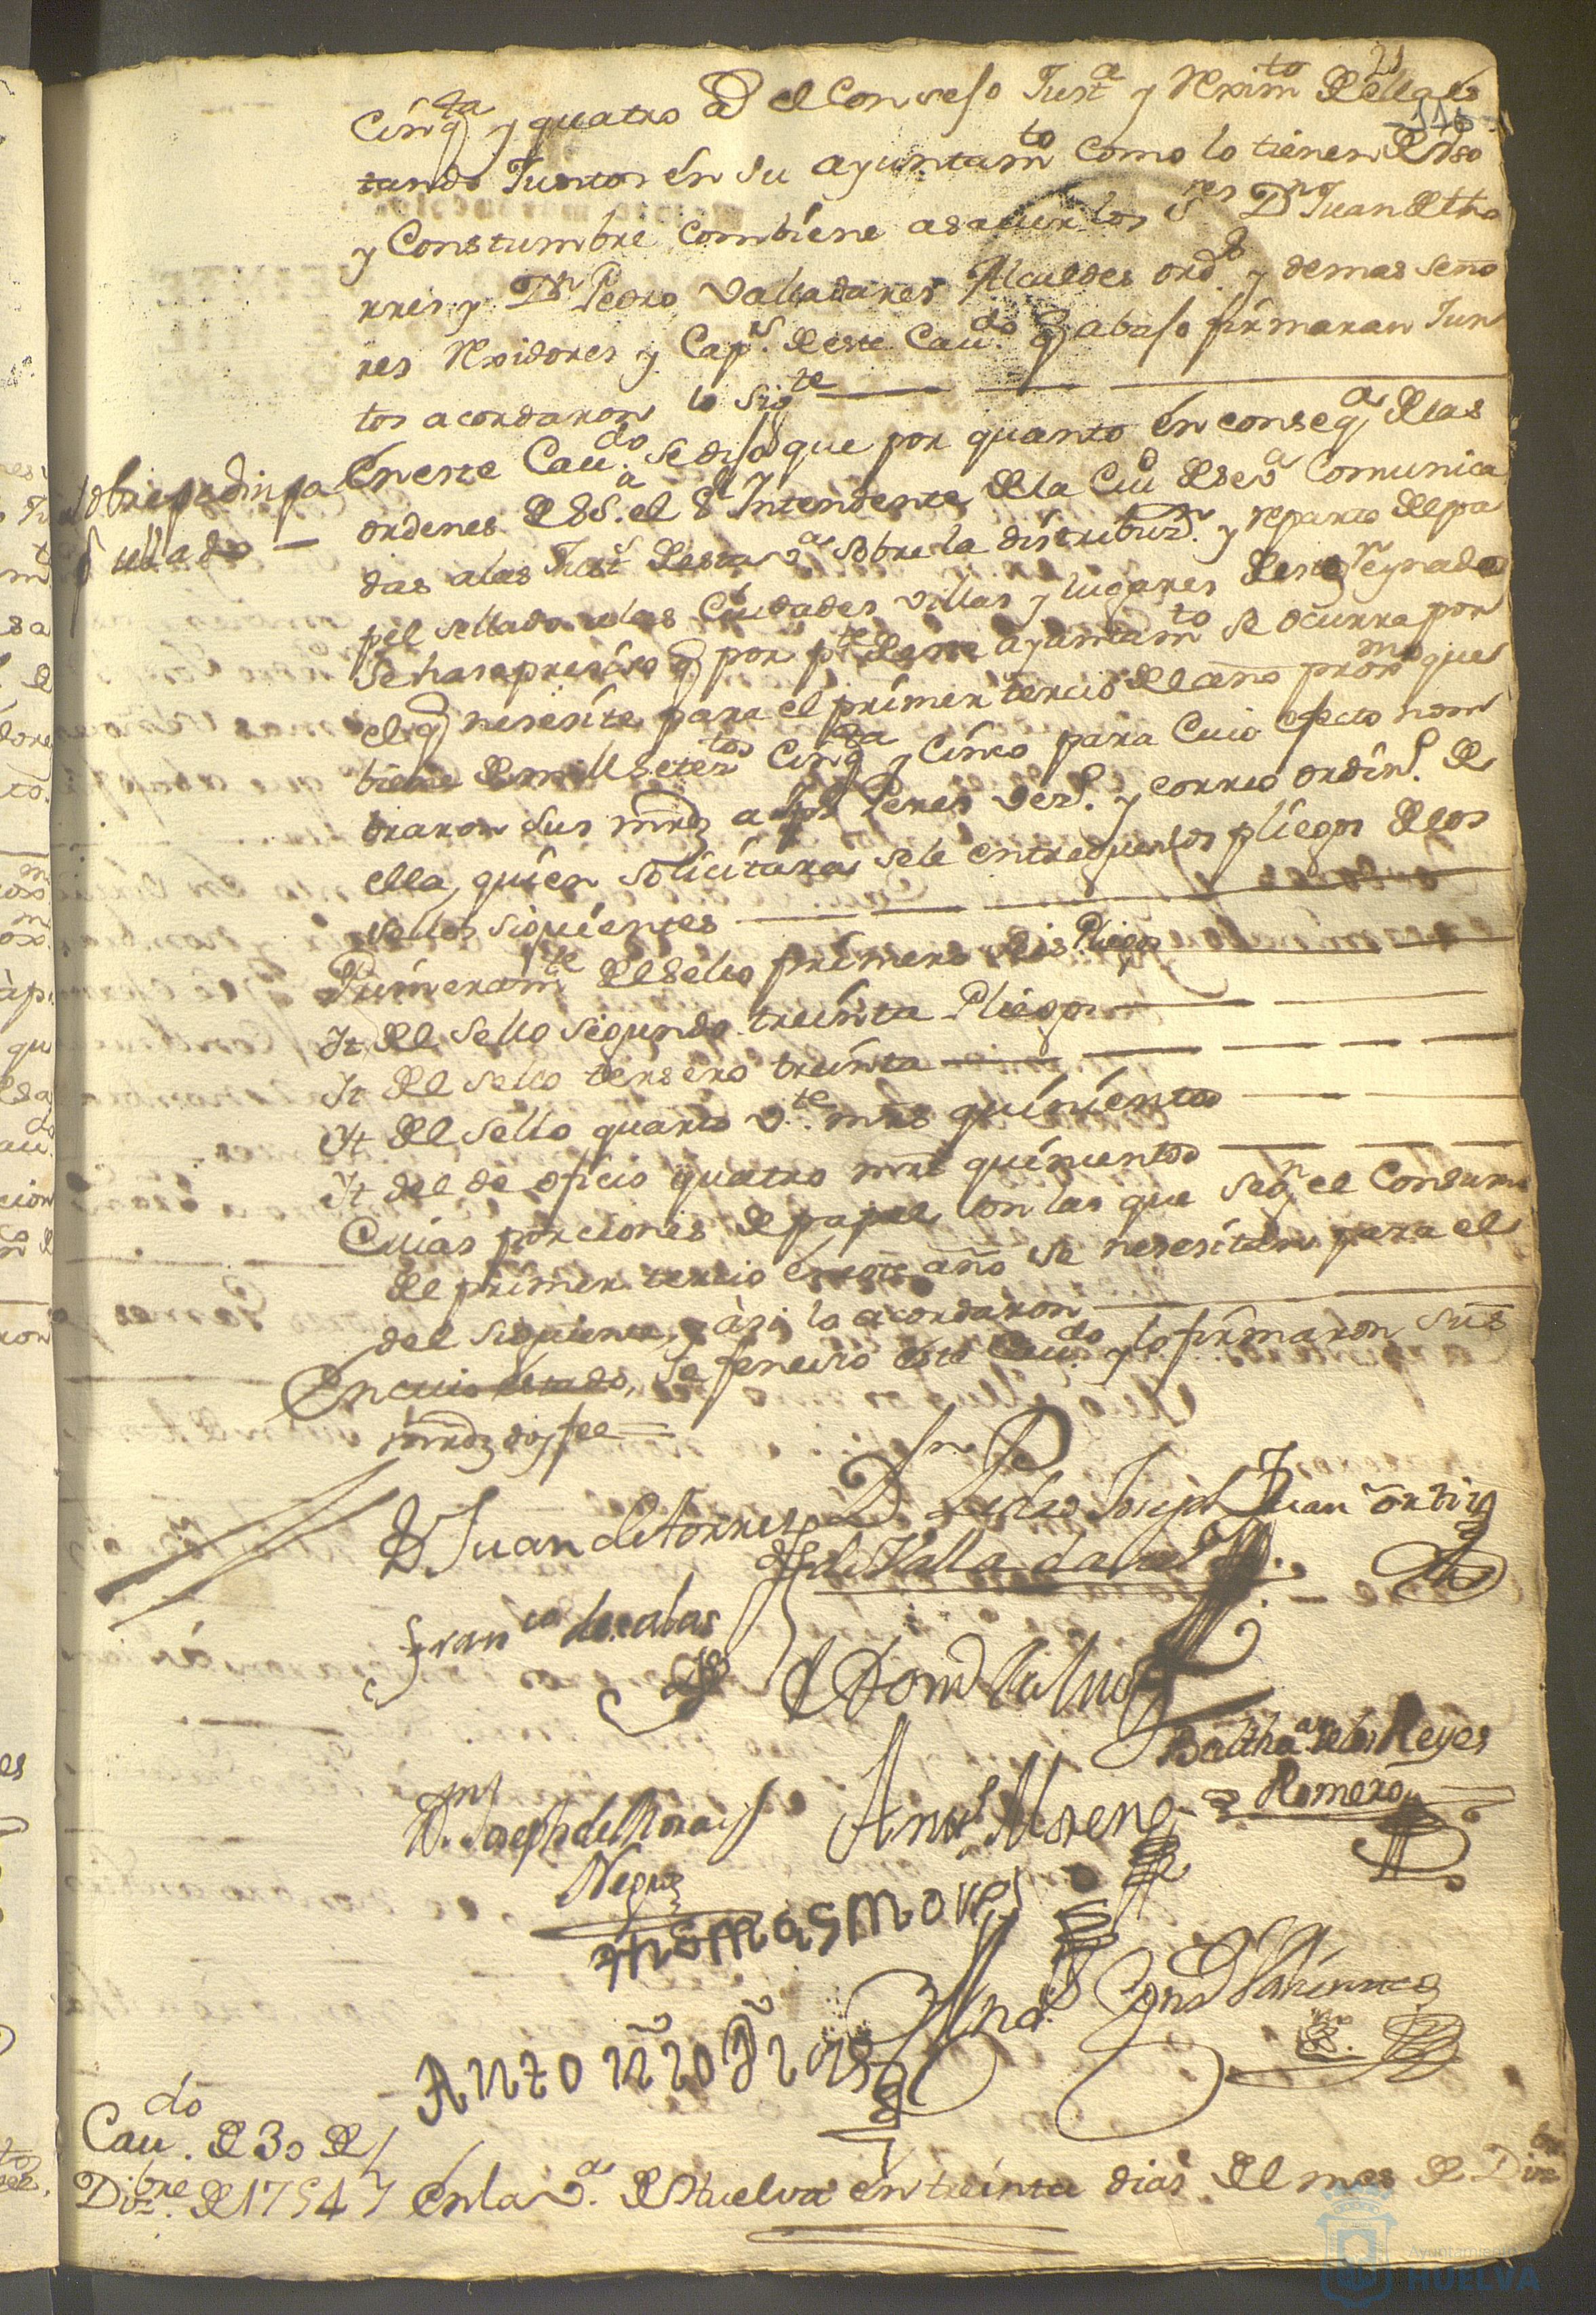 21
116
Cinqta y quatro as el Conzeso Justa y Reximto de ella es
tando Juntos en su ayuntamto como lo tienen de uso
y Constumbre combiene a saver los Sres Dn Juan de tho
rres y Dn Pedro Valladares Alcaldes ords y demas Seño
res Rexidores y Caps. de este Caudo. q abaso firmaran Jun
tos acordaron lo Sigte
Sobre pedir pa
pel sellado
En este Caudo. se diso que por quanto en conseqa de las
ordenes de S Sa. el Sr Intendente de la Ciud de Seva Comunica
das a las Justs de esta va sobre la distribuzn. y reparto de pa
pel sellado a las Ciudades villas y lugares de este Reynado
Se ha se presiso q por pte de este ayuntamto se ocurra por
el q nesesite para el primer tercio de el año proxmo que
biene de mill setezos cinqta y cinco para cuio efecto nom
braron sus mrds a Peres vezo. y correo ordino. de
ella, quien solicitara se le entreguen los pliegos de los
sellos siguientes
Primeramte de el Sello primero seis Pliegos
It de el Sello segundo treinta Pliegos
It de el sello tersero treinta
It de el sello quarto vte. mrs quinientos
It del de oficio quatro mrs quinientos
Cuias porciones de papel son las que segn el Consumo
de el primer tercio en este año se nesesitan para el
del siguiente, y asi lo acordaron
En cuio estado, se fenecio este Caudo. y lo firmaron sus
mrds doy fee
D. Juan de torres
Dn Pedro Joseph
de Valladares
Juan ortiz
Franco de salas
Balthasar de los Reyes
Romero
Dn. Joseph del
Negro
Anto Moreno
thomas Moreno
Antonio
Caudo. de 30 de
Dizbre. de 1754
En la va. de Huelva en treinta dias de el mes de Dize
Ayuntamiento
HUELVA